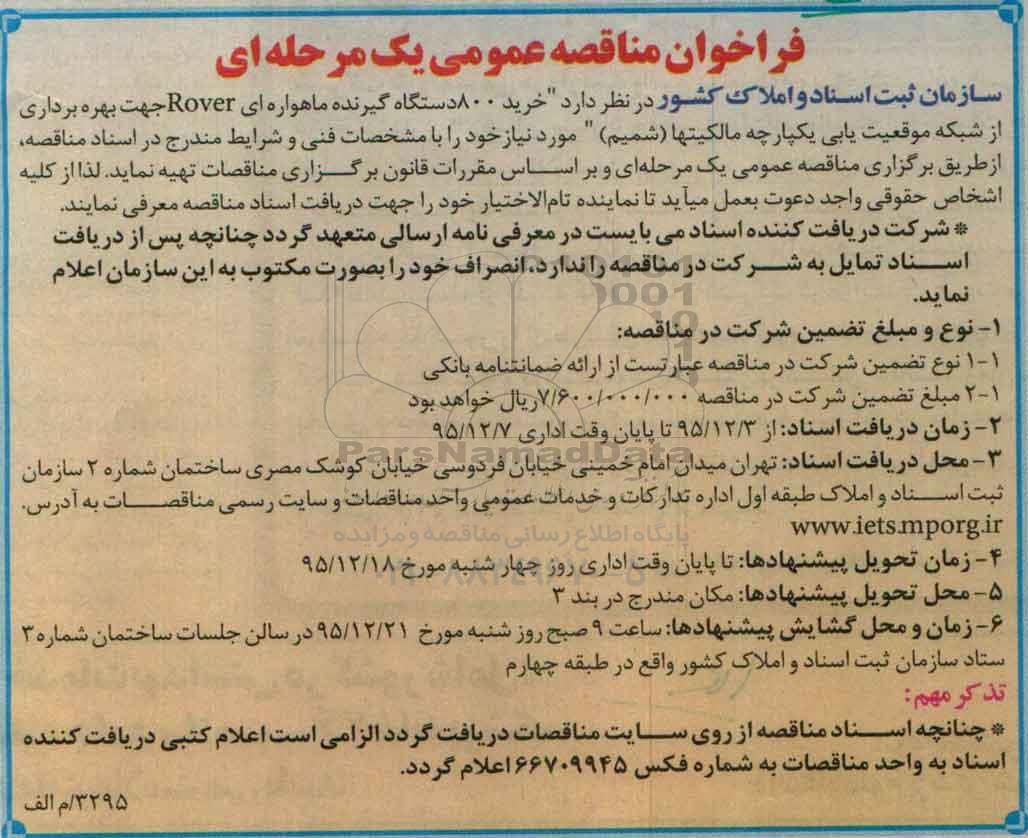 فراخوان مناقصه عمومی یک مرحله ای
سازمان ثبت اسناد و املاک کشور در نظر دارد "خرید ۸۰۰دستگاه گیرنده ماهواره ای Roverجهت بهره برداری
از شبکه موقعیت یابی یکپارچه مالکیتها (شمیم) " مورد نیاز خود را با مشخصات فنی و شرایط مندرج در اسناد مناقصه،
ازطریق برگزاری مناقصه عمومی یک مرحله‌ای و بر اساس مقررات قانون برگزاری مناقصات تهیه نماید. لذا از کلیه
اشخاص حقوقی واجد دعوت بعمل میآید تا نماینده تام‌الاختیار خود را جهت دریافت اسناد مناقصه معرفی نمایند.
* شرکت دریافت کننده اسناد می بایست در معرفی نامه ارسالی متعهد گردد چنانچه پس از دریافت
اسناد تمایل به شرکت در مناقصه را ندارد، انصراف خود را بصورت مکتوب به این سازمان اعلام
نماید.
۱- نوع و مبلغ تضمین شرکت در مناقصه:
۱-۱ نوع تضمین شرکت در مناقصه عبارتست از ارائه ضمانتنامه بانکی
۲-۱ مبلغ تضمین شرکت در مناقصه ۷/۶۰۰/۰۰۰/۰۰۰ریال خواهد بود
۲- زمان دریافت اسناد: از ۹۵/۱۲/۳ تا پایان وقت اداری ۹۵/۱۲/۷
ParsNamadData
۳- محل دریافت اسناد: تهران میدان امام خمینی خیابان فردوسی خیابان کوشک مصری ساختمان شماره ۲ سازمان
ثبت اسناد و املاک طبقه اول اداره تدارکات و خدمات عمومی واحد مناقصات و سایت رسمی مناقصات به آدرس.
www.iets.mporg.ir
پایگاه اطلاع رسانی مناقصه و مزایده
۴- زمان تحویل پیشنهادها: تا پایان وقت اداری روز چهار شنبه مورخ ۹۵/۱۲/۱۸
۵- محل تحویل پیشنهادها: مکان مندرج در بند ۳
۶- زمان و محل گشایش پیشنهادها: ساعت ۹ صبح روز شنبه مورخ ۹۵/۱۲/۲۱ در سالن جلسات ساختمان شماره ۳
ستاد سازمان ثبت اسناد و املاک کشور واقع در طبقه چهارم
تذکر مهم:
* چنانچه اسناد مناقصه از روی سایت مناقصات دریافت گردد الزامی است اعلام کتبی دریافت کننده
اسناد به واحد مناقصات به شماره فکس ۶۶۷۰۹۹۴۵ اعلام گردد.
۳۲۹۵/م الف